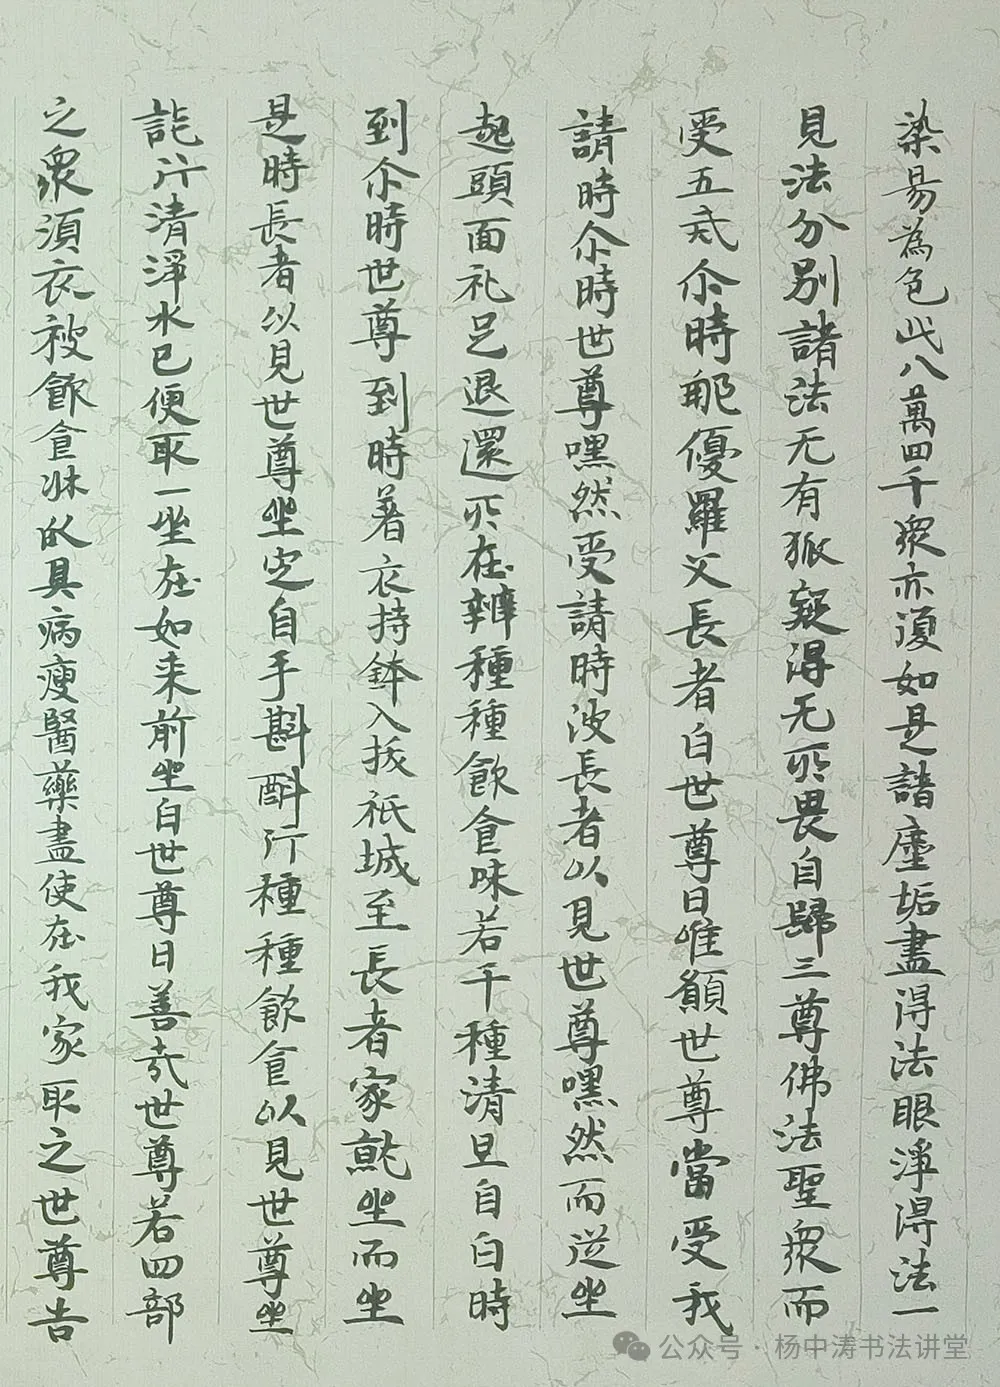 染易為色此八萬四千眾亦復如是諸塵垢盡得法眼淨得法一
見法分別諸法无有狐疑得无所畏自歸三尊佛法聖眾而
受五戒尒時那優羅父長者白世尊曰唯願世尊當受我
請時尒時世尊嘿然受請時彼長者以見世尊嘿然而從坐
起頭面礼足退還所在辦種種飲食味若干種清旦自白時
到尒時世尊到時著衣持鉢入拔祇城至長者家就坐而坐
是時長者以見世尊坐定自手斟酌行種種飲食以見世尊坐
訖行清淨水已便取一座在如来前坐白世尊曰善哉世尊若四部
之眾須衣被飲食牀臥具病瘦醫藥盡使在我家取之世尊告
公众号·杨中涛书法讲堂